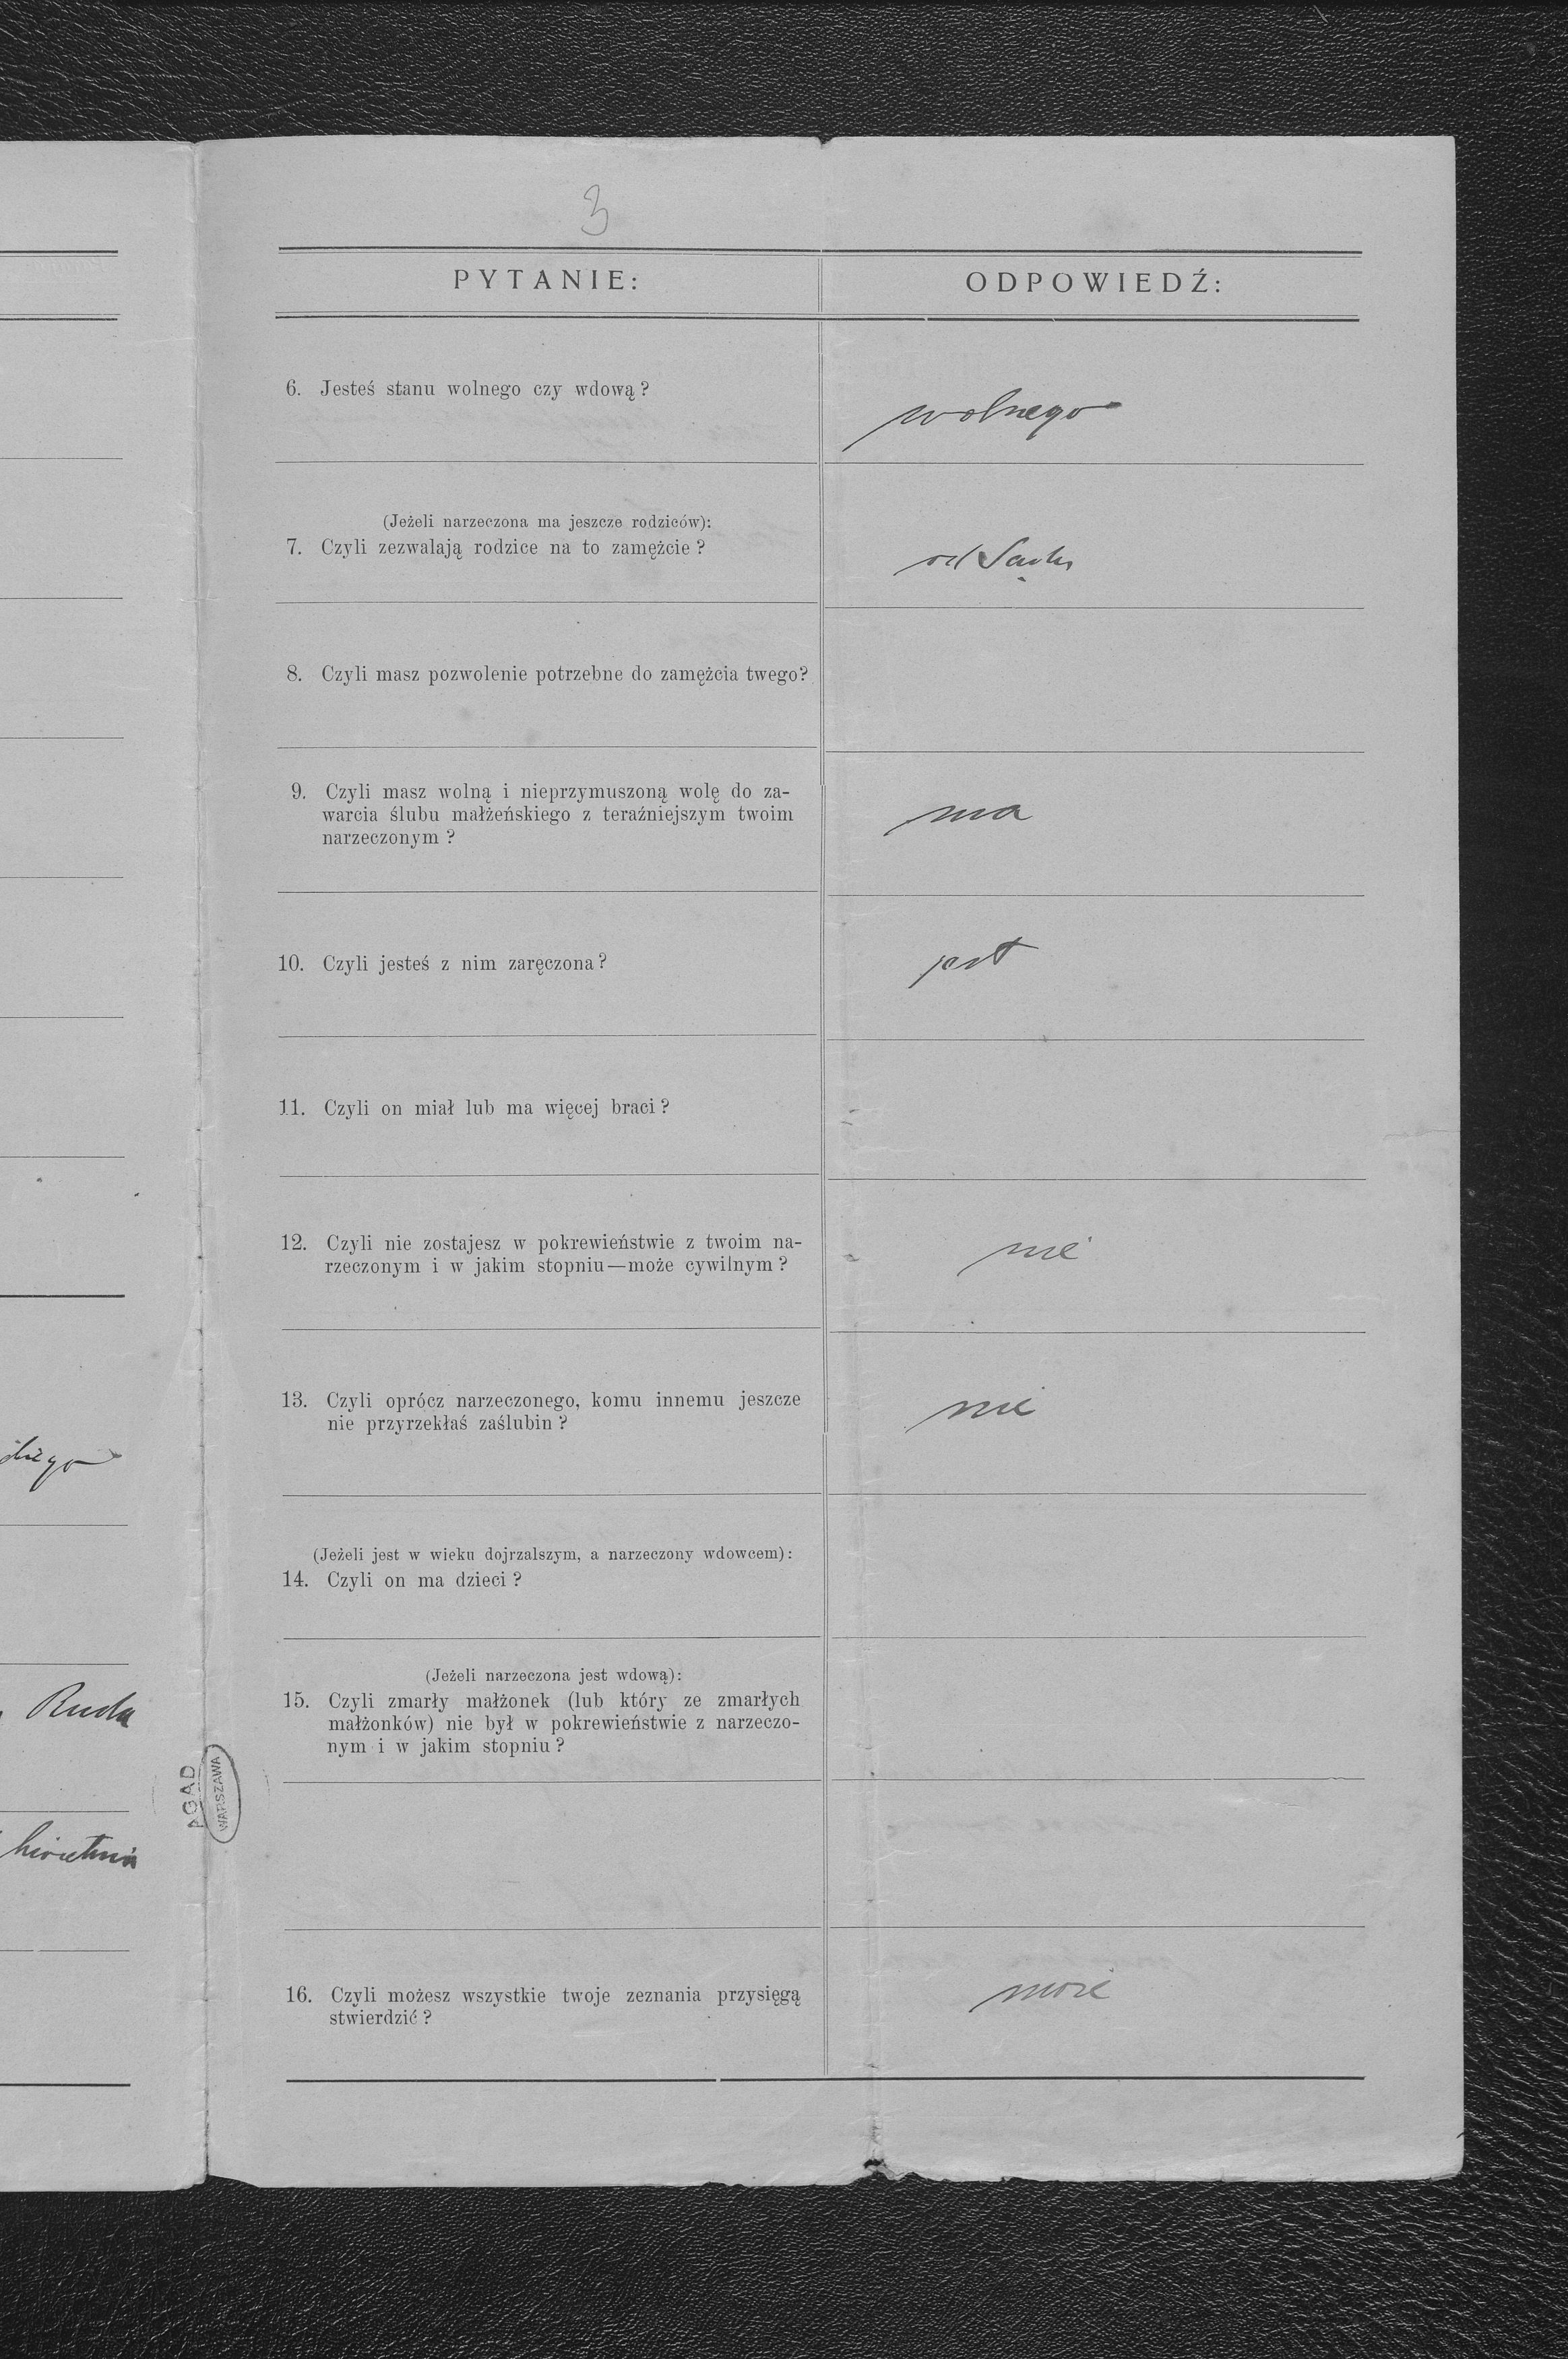 3
PYTANIE:
ODPOWIEDŹ:
6. Jesteś stanu wolnego czy wdową?
wolnego
(Jeżeli narzeczona ma jeszcze rodziców):
7. Czyli zezwalają rodzice na to zamężcie?
od Sądu
8. Czyli masz pozwolenie potrzebne do zamężcia twego?
9. Czyli masz wolną i nieprzymuszoną wolę do za-
warcia ślubu małżeńskiego z teraźniejszym twoim
narzeczonym?
ma
10. Czyli jesteś z nim zaręczona?
jest
11. Czyli on miał lub ma więcej braci?
12. Czyli nie zostajesz w pokrewieństwie z twoim na-
rzeczonym i w jakim stopniu—może cywilnym?
nie
13. Czyli oprócz narzeczonego, komu innemu jeszcze
nie przyrzekłaś zaślubin?
nie
(Jeżeli jest w wieku dojrzalszym, a narzeczony wdowcem):
14. Czyli on ma dzieci?
(Jeżeli narzeczona jest wdową):
15. Czyli zmarły małżonek (lub który ze zmarłych
małżonków) nie był w pokrewieństwie z narzeczo-
nym i w jakim stopniu?
16. Czyli możesz wszystkie twoje zeznania przysięgą
stwierdzić?
może
Ruda
AGAD
WARSZAWA